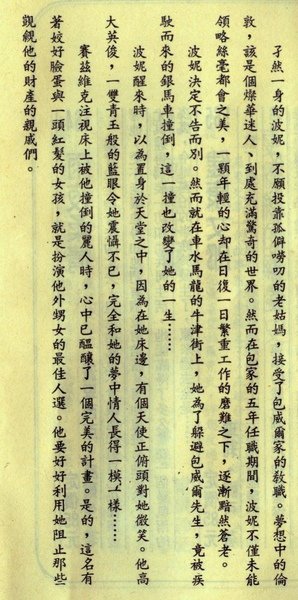 孑然一身的波妮，不願投靠孤僻嘮叨的老姑媽，接受了包威爾家的教職。夢想中的倫
敦，該是個燦華迷人、到處充滿驚奇的世界。然而在包家的五年任職期間，波妮不僅未能
領略絲毫都會之美，一顆年輕的心却在日復一日繁重工作的磨難之下，逐漸黯然蒼老。
波妮決定不告而別。然而就在車水馬龍的牛津街上，她為了躲避包威爾先生，竟被疾
駛而來的銀馬車撞倒，這一撞也改變了她的一生……
波妮醒來時，以為置身於天堂之中，因為在她床邊，有個天使正俯頭對她微笑。他高
大英俊，一雙青玉般的藍眼令她震懾不已，完全和她的夢中情人長得一模一樣……
賽茲維克注視床上被他撞倒的麗人時，心中已醞釀了一個完美的計畫。是的，這名有
著姣好臉蛋與一頭紅髮的女孩，就是扮演他外甥女的最佳人選。他要好好利用她阻止那些
覬覦他的財產的親戚們。